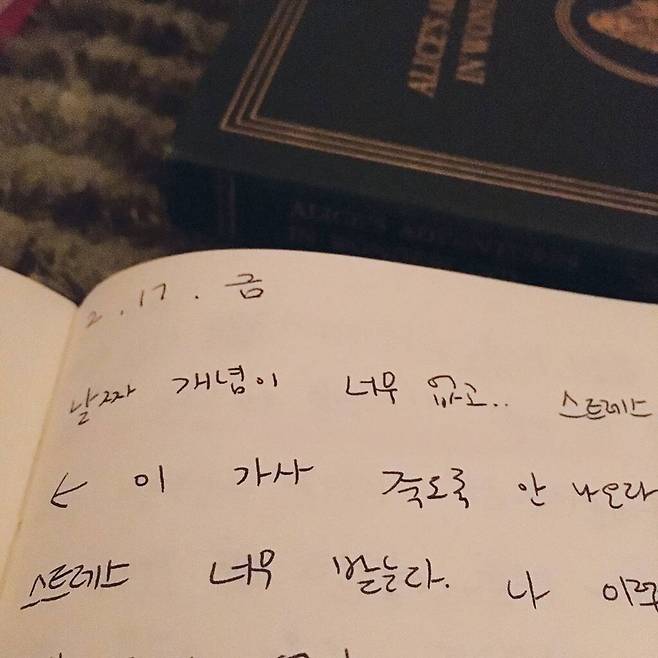 ALICE'S
IN WON
ALICE'S ADVENTURES
IN
2.17.금
날짜 개념이 너무 없고.. 스트레스
← 이 가사 죽도록 안 나오라
스트레스 너무 받는다. 나 이